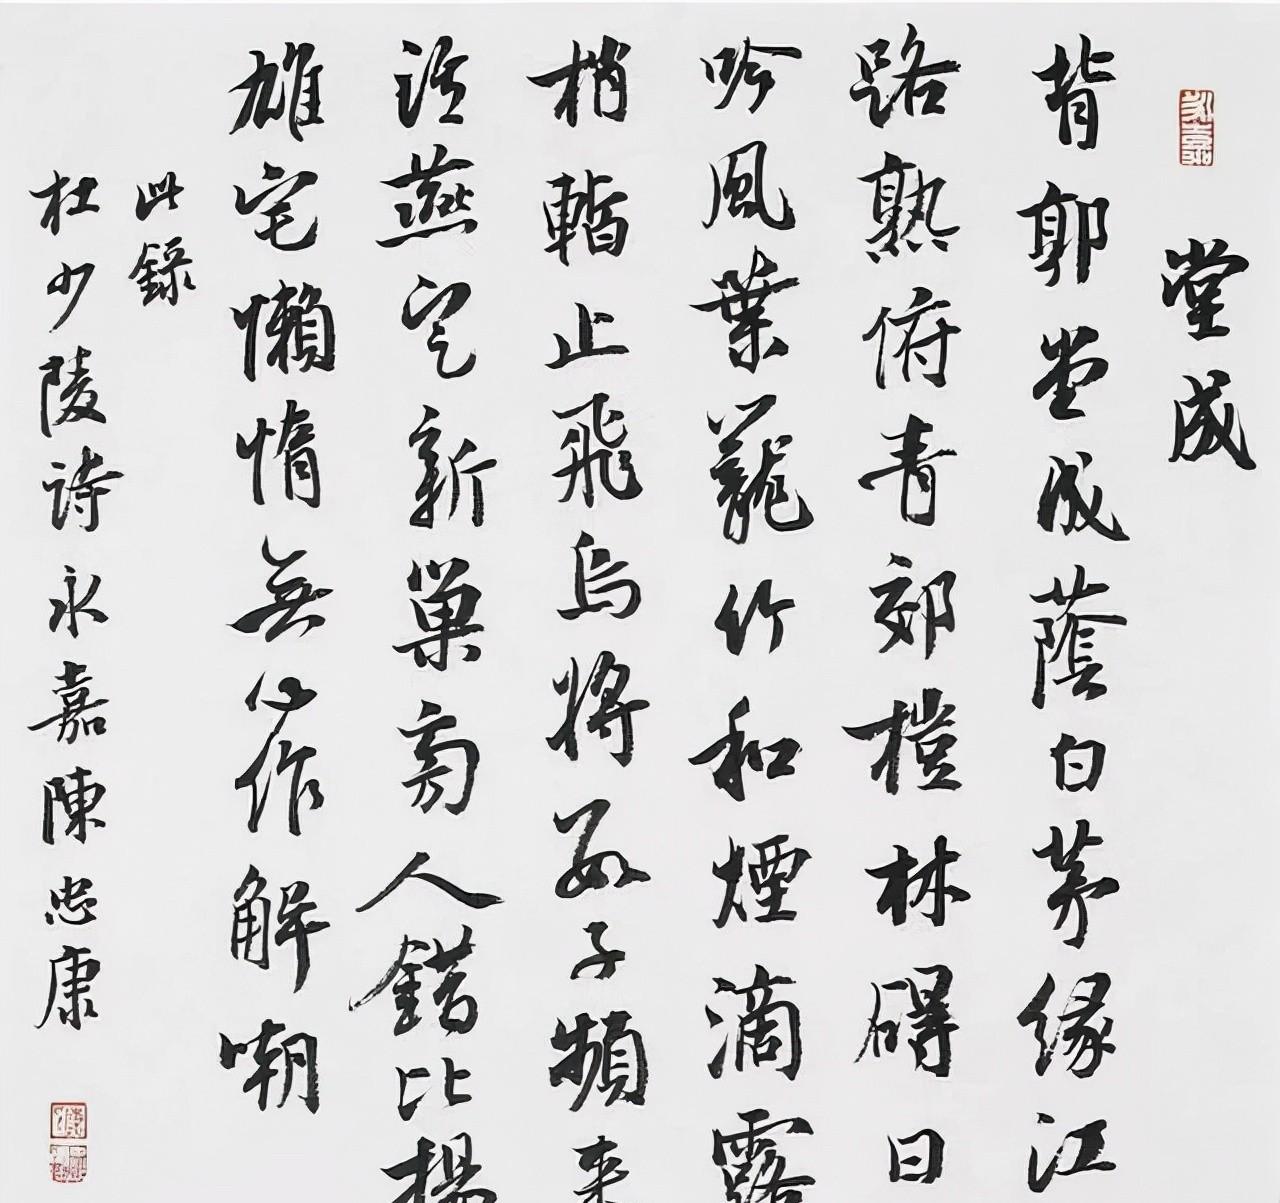 堂成
背郭堂成蔭白茅緣江
路熟俯青郊榿林礙日
吟風葉籠竹和煙滴露
梢暫止飛烏將數子頻來
語燕定新巢旁人錯比揚
雄宅懶惰無心作解嘲
此錄
杜少陵詩永嘉陳忠康